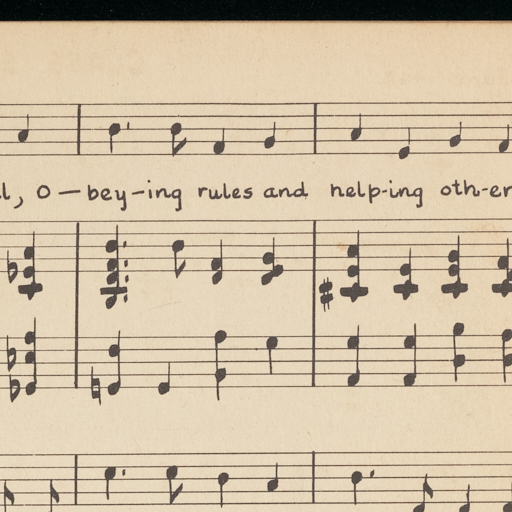 l, O—bey-ing rules and help-ing oth-er